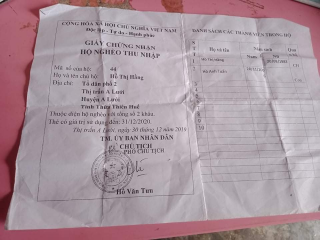 CỘNG HÒA XÃ HỘI CHỦ NGHĨA VIỆT NAM
Độc lập - Tự do - Hạnh phúc
GIẤY CHỨNG NHẬN
HỘ NGHÈO THU NHẬP
Mã số của hộ: 44
Họ và tên chủ hộ: Hồ Thị Hằng
Địa chỉ: Tổ dân phố 2
Thị trấn A Lưới
Huyện A Lưới
Tỉnh Thừa Thiên Huế
Thuộc diện hộ nghèo với tổng số 2 khẩu.
Thẻ có giá trị sử dụng đến: 31/12/2020.
Thị trấn A Lưới, ngày 30 tháng 12 năm 2019
TM. ỦY BAN NHÂN DÂN
CHỦ TỊCH
PHÓ CHỦ TỊCH
Hồ Văn Tưn
DANH SÁCH CÁC THÀNH VIÊN TRONG HỘ
Họ và tên
Năm sinh